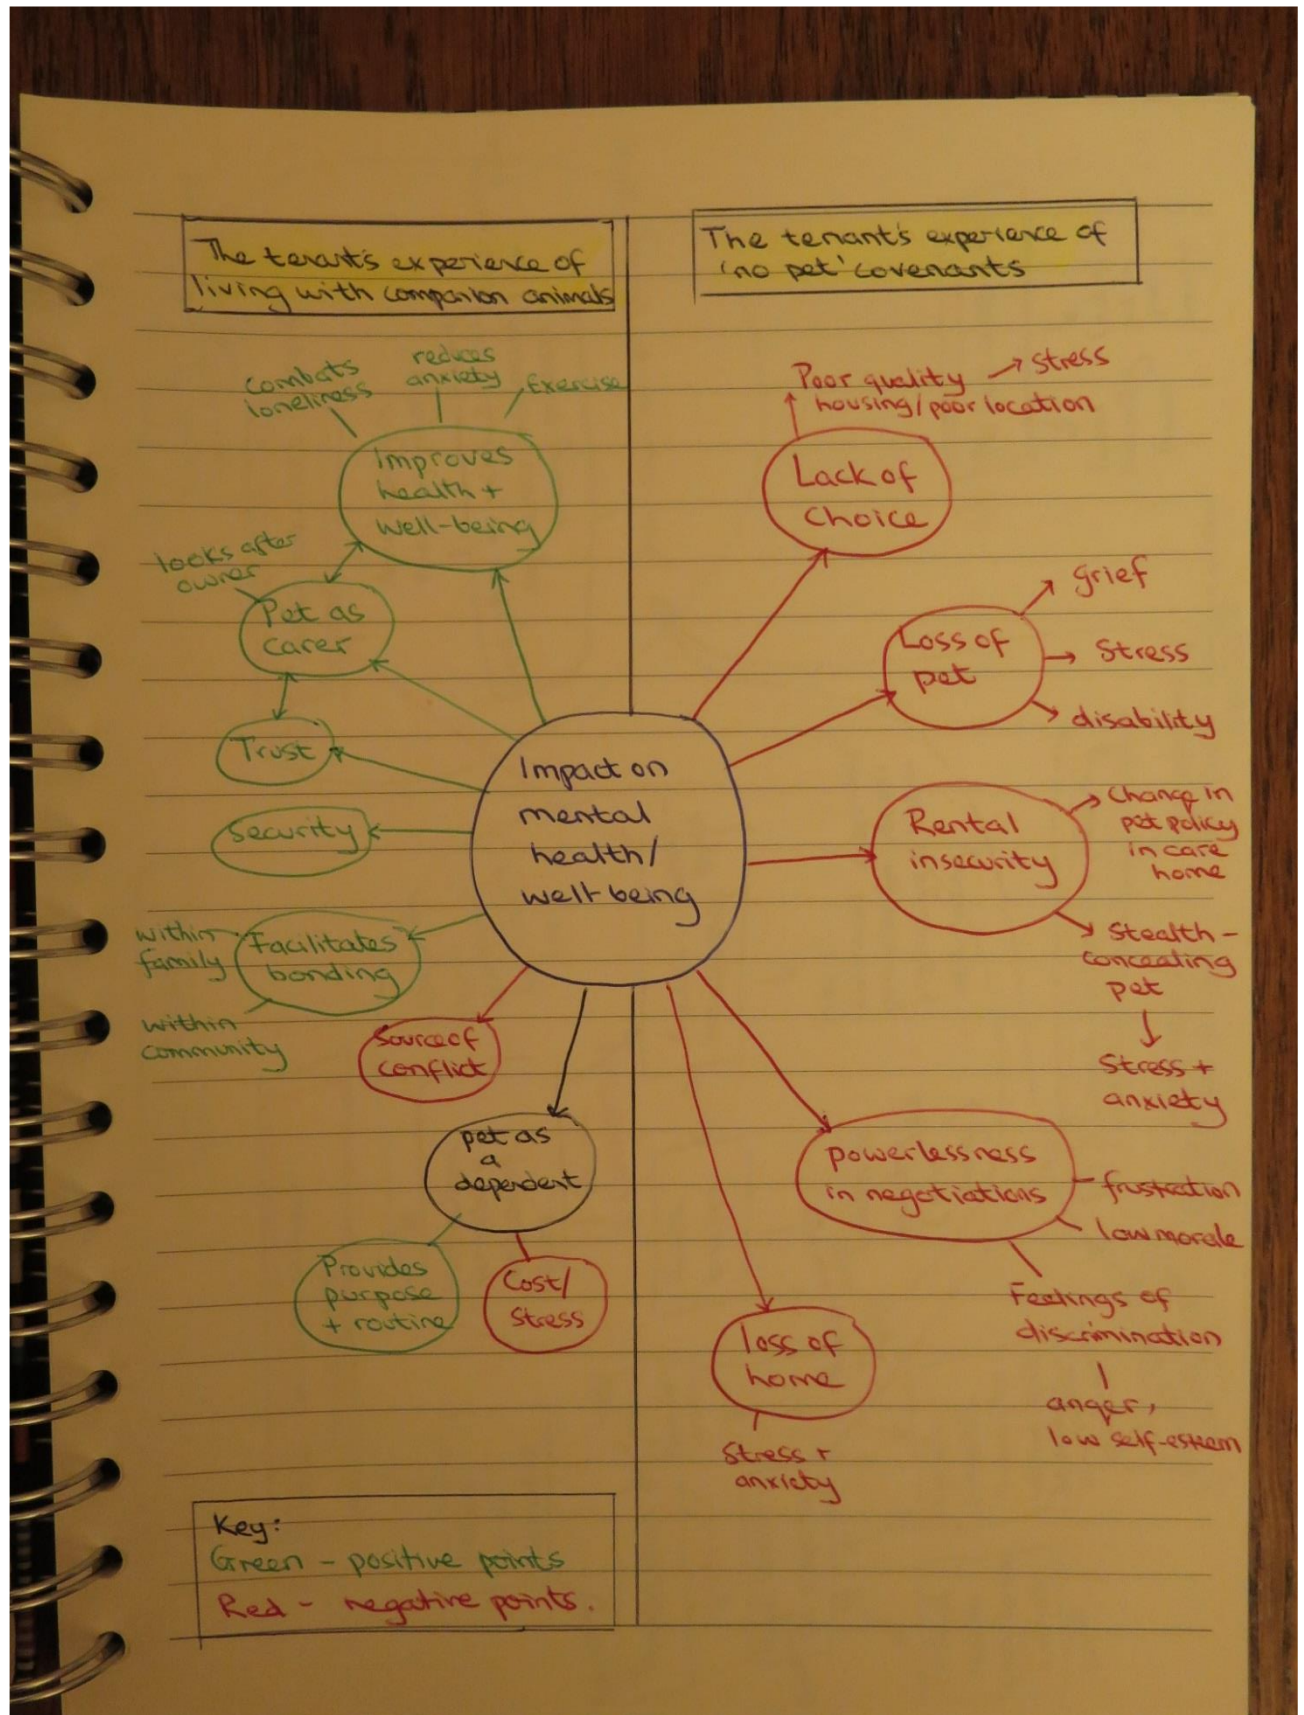 The tenant's experience of
living with companion animals
The tenant's experience of
'no pet' covenants
combats
loneliness
reduces
anxiety
Exercise
Improves
health +
well-being
looks after
owner
Pet as
carer
Trust
Security
within
family
Facilitates
bonding
within
community
Source of
conflict
pet as
a
dependent
Provides
purpose
+ routine
Cost/
Stress
Impact on
mental
health/
well being
Poor quality
housing/poor location
Stress
Lack of
Choice
Loss of
pet
grief
Stress
disability
Rental
insecurity
Change in
pet policy
in care
home
Stealth -
concealing
pet
Stress +
anxiety
powerlessness
in negotiations
frustration
low morale
Feelings of
discrimination
anger,
low self-esteem
loss of
home
Stress +
anxiety
Key:
Green - positive points
Red - negative points.